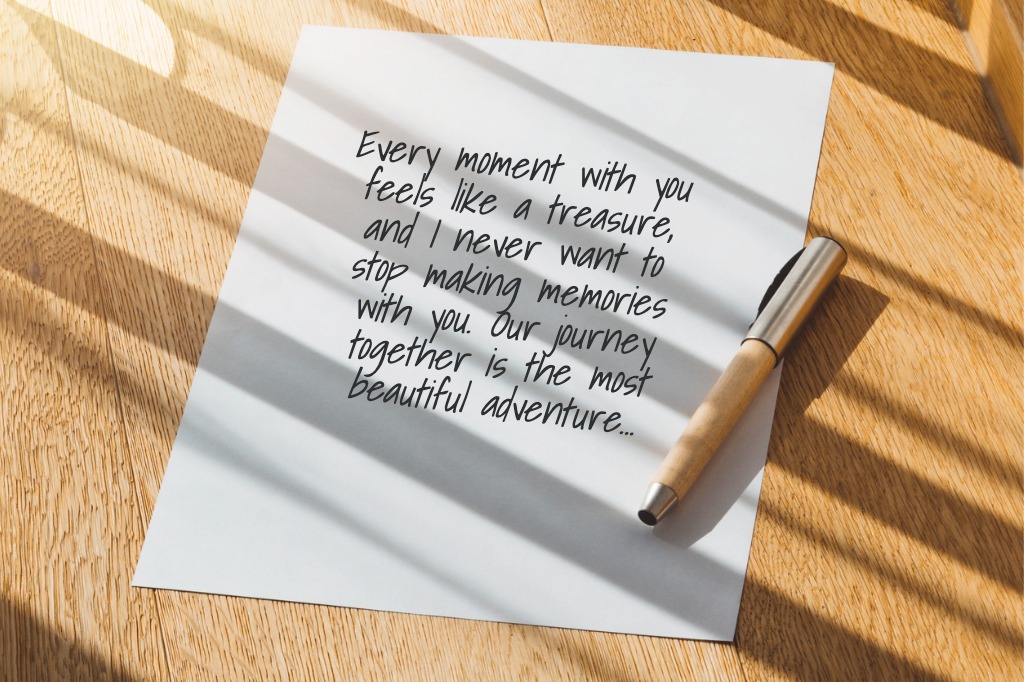 Every moment with you
feels like a treasure,
and I never want to
stop making memories
with you. Our journey
together is the most
beautiful adventure...